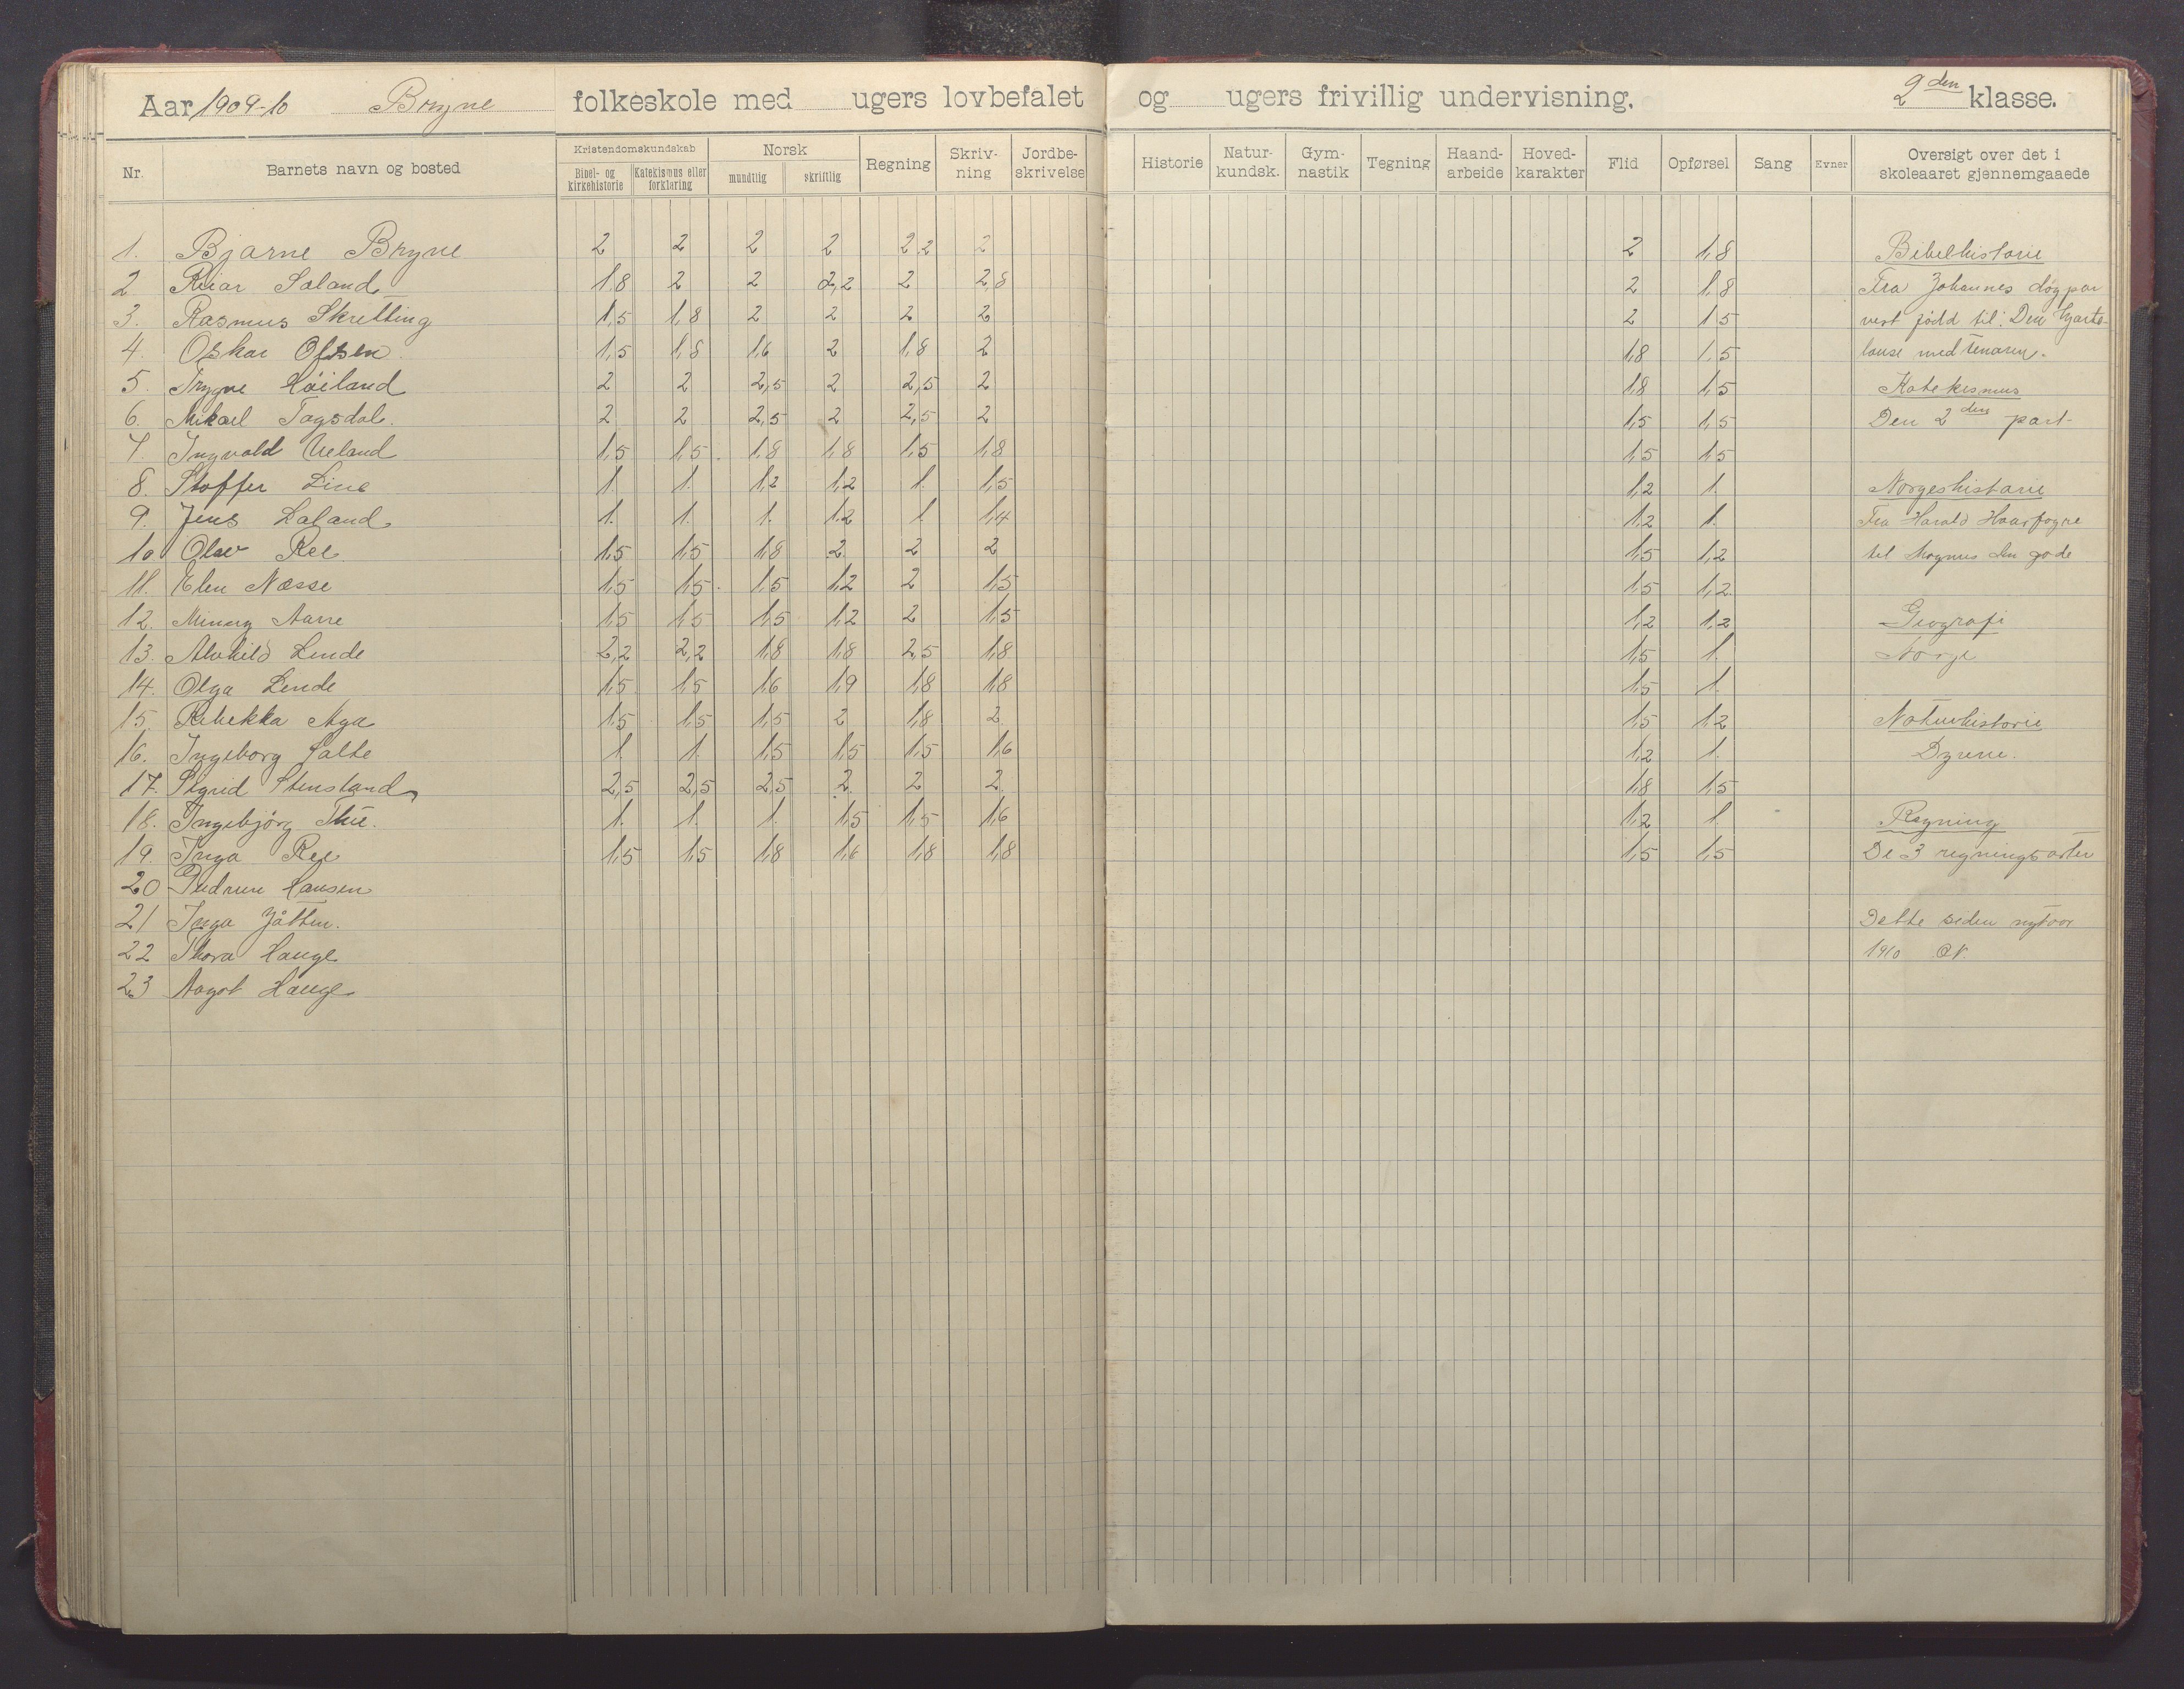 Aar 1909-10 Bryne folkeskole med ugers lovbefalet og ugers frivillig undervisning. 2den klasse.
Nr. Barnets navn og bosted Kristendomskundskab Bibel- og kirkehistorie Katekismus eller forklaring Norsk mundtlig skriftlig Regning Skriv-ning Jordbe-skrivelse Historie Natur-kundsk. Gym-nastik Tegning Haand-arbeide Hoved-karakter Flid Opførsel Sang Evner Oversigt over det i skoleaaret gjennemgaaede
1. Bjarne Bryne 2 2 2 2 2,2 2 2 1,8 Bibelhistorie
2 Saland 1,8 2 2 2,2 2 2,8 2 1,8 Fra Johannes døyparen
3. Rasmus Skretting 1,5 1,8 2 2 2 2 2 1,5 vert fødd til: Den hjarte-
4. Oskar Olsen 1,5 1,8 1,6 2 1,8 2 1,8 1,5 lause med tenaren.
5. Trygve Høiland 2 2 2,5 2 2,5 2 1,8 1,5 Katekismus
6. Mikael Tagsdal. 2 2 2,5 2 2,5 2 1,5 1,5 Den 2den part.
7. Ingvald Ueland 1,5 1,5 1,8 1,8 1,5 1,8 1,5 1,5
8. Stoffer Line 1. 1. 1,2 1,2 1. 1,5 1,2 1. Norgeshistorie
9. Jens Laland 1. 1. 1. 1,2 1. 1,4 1,2 1. Fra Harald Haarfagre
10 Olav Ree 1,5 1,5 1,8 2 2 2 1,5 1,2 til Magnus den gode
11. Elen Næsse 1,5 1,5 1,5 1,2 2 1,5 1,5 1,2
12. Minny Aarre 1,5 1,5 1,5 1,2 2 1,5 1,2 1,2 Geografi
13. Alvhild Lende 2,2 2,2 1,8 1,8 2,5 1,8 1,5 1. Norge
14. Olga Lende 1,5 1,5 1,6 1,9 1,8 1,8 1,5 1.
15. Rebekka Aga 1,5 1,5 1,5 2 1,8 2 1,5 1,2 Naturhistorie
16. Ingeborg Salte 1 1. 1,5 1,5 1,5 1,6 1,2 1. Dyrene.
17. Sigrid Stensland 2,5 2,5 2,5 2 2 2 1,8 1,5
18. Ingebjørg Thue. 1. 1. 1. 1,5 1,5 1,6 1,2 1. Regning
19. Inga Ree 1,5 1,5 1,8 1,8 1,8 1,5 1,5 De 3 regningsarter
20 Gudrun Hansen
21 Inga Jåtten. Dette seden nytaar
22 Thora Hauge 1910
23 Aagot Hauge